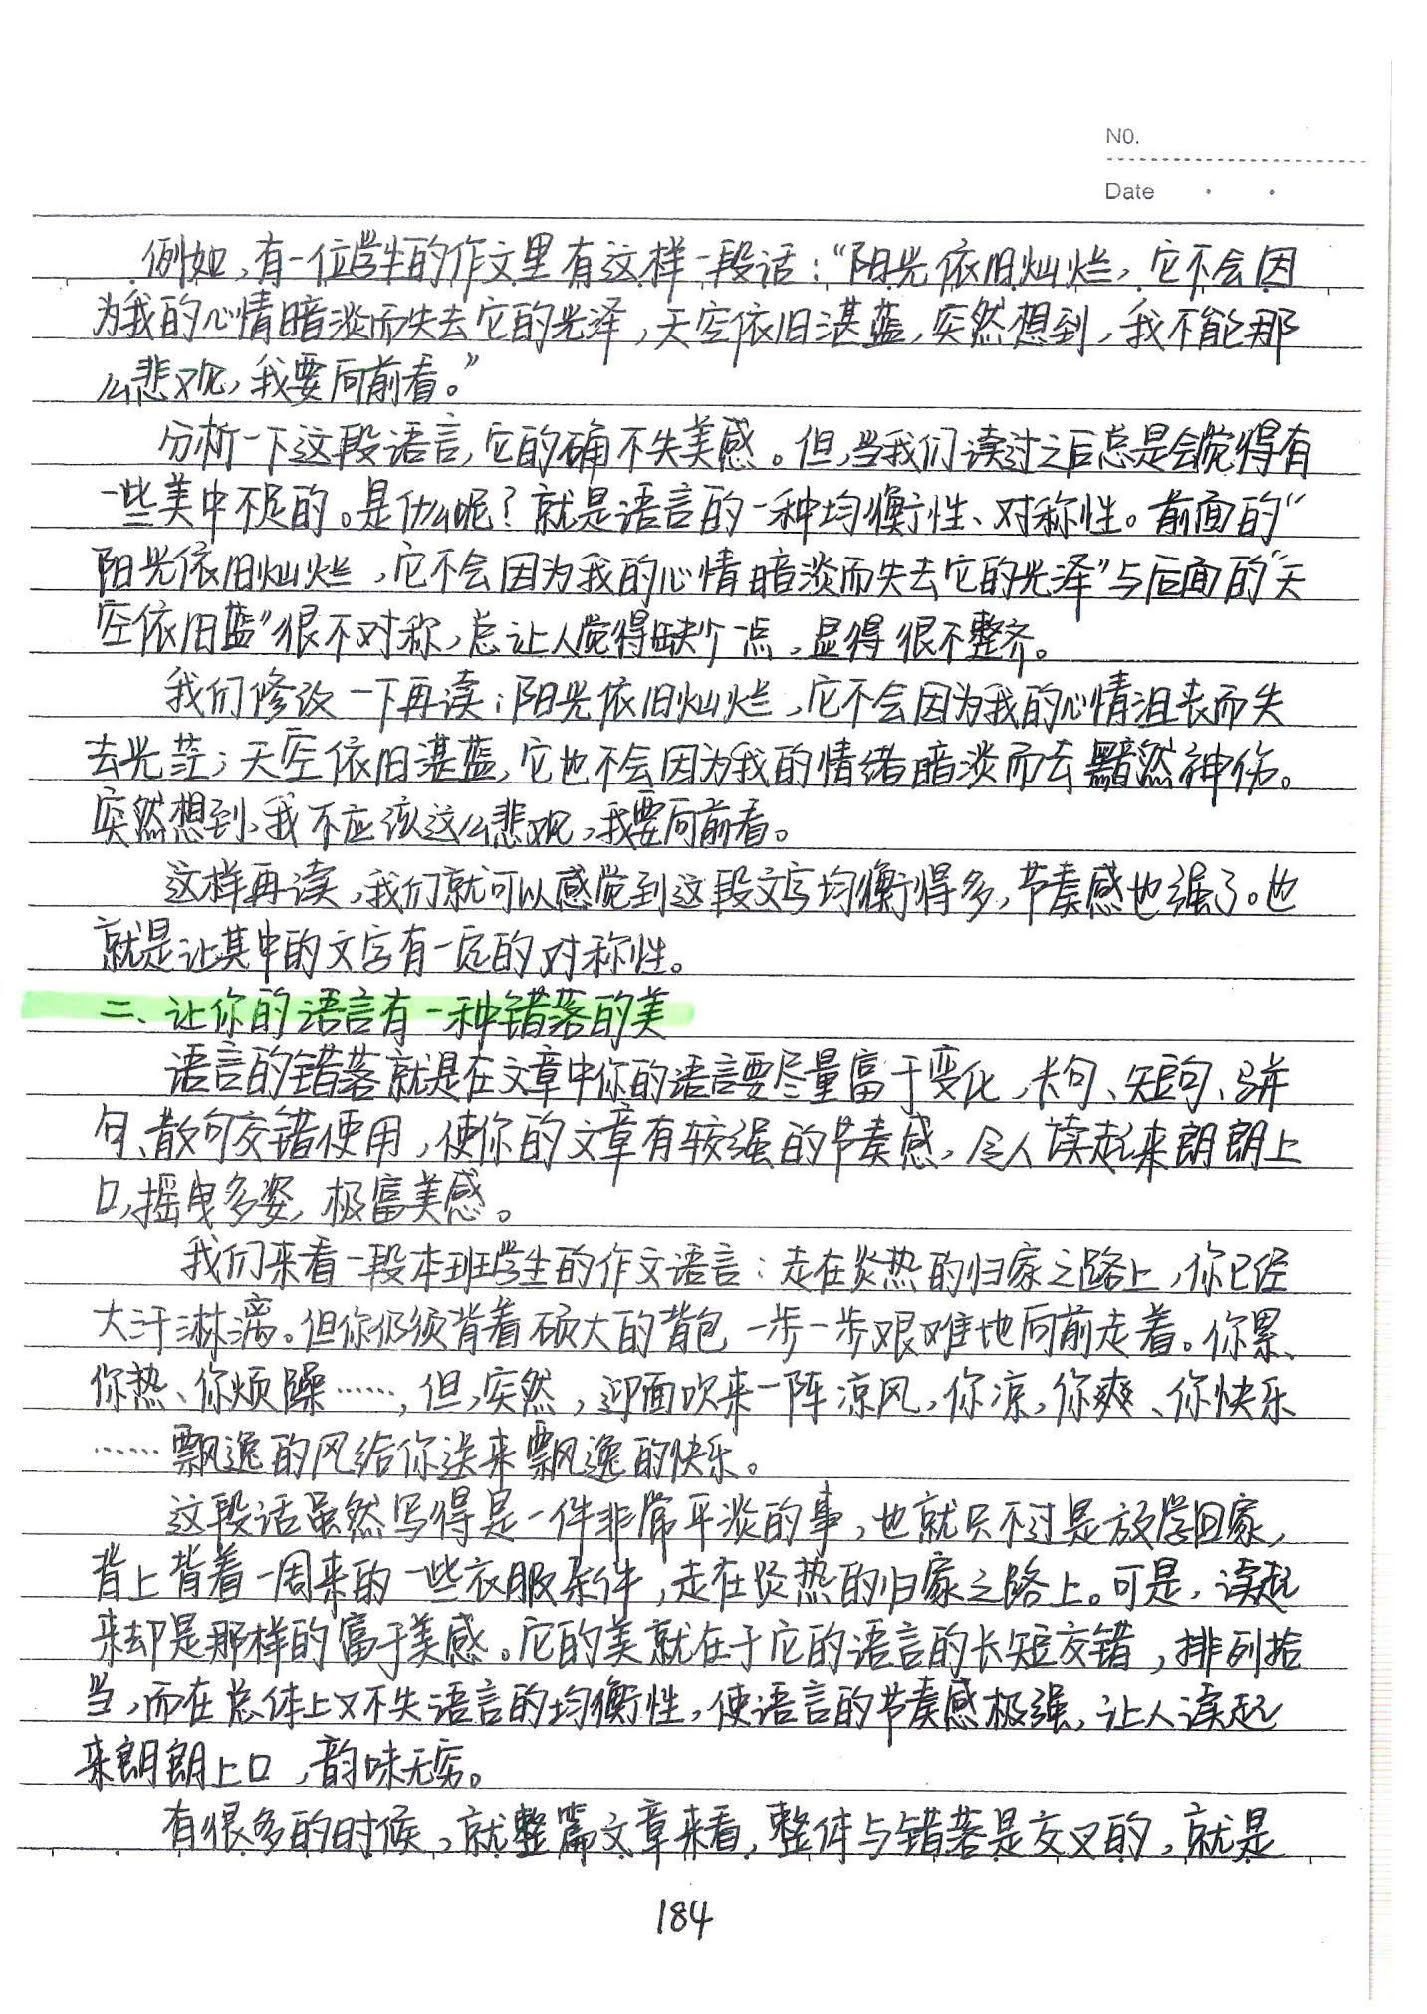 NO.
Date
例如,有一位学生的作文里有这样一段话:“阳光依旧灿烂,它不会因
为我的心情暗淡而失去它的光泽,天空依旧湛蓝,突然想到,我不能那
么悲观,我要向前看。”
分析一下这段语言,它的确不失美感。但,当我们读过之后总是会觉得有
一些美中不足的。是什么呢?就是语言的一种均衡性、对称性。前面的“
阳光依旧灿烂,它不会因为我的心情暗淡而失去它的光泽”与后面的“天
空依旧蓝”很不对称,总让人觉得缺少一点,显得很不整齐。
我们修改一下再读:阳光依旧灿烂,它不会因为我的心情沮丧而失
去光茫;天空依旧湛蓝,它也不会因为我的情绪暗淡而去黯然神伤。
突然想到,我不应该这么悲观,我要向前看。
这样再读,我们就可以感觉到这段文字均衡得多,节奏感也强了。也
就是让其中的文字有一定的对称性。
二、让你的语言有一种错落的美
语言的错落就是在文章中你的语言要尽量富于变化,长句、短句、骈
句、散句交错使用,使你的文章有较强的节奏感,令人读起来朗朗上
口,摇曳多姿,极富美感。
我们来看一段本班学生的作文语言:走在炎热的归家之路上,你已经
大汗淋漓。但你仍须背着硕大的背包一步一步艰难地向前走着。你累、
你热、你烦躁……,但,突然,迎面吹来一阵凉风,你凉,你爽、你快乐
……飘逸的风给你送来飘逸的快乐。
这段话虽然写得是一件非常平淡的事,也就只不过是放学回家,
背上背着一周来的一些衣服杂件,走在炎热的归家之路上。可是,读起
来却是那样的富于美感。它的美就在于它的语言的长短交错,排列恰
当,而在总体上又不失语言的均衡性,使语言的节奏感极强,让人读起
来朗朗上口,韵味无穷。
有很多的时候,就整篇文章来看,整体与错落是交叉的,就是
184